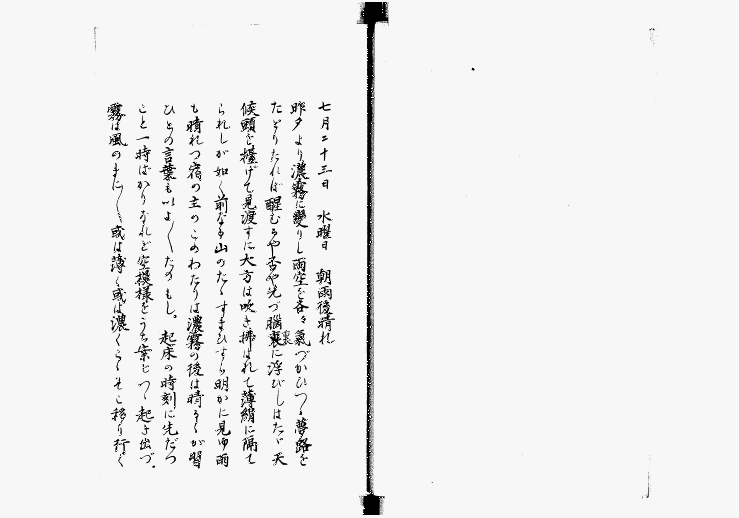 七月二十三日　水曜日　朝雨後晴れ
昨夕より濃霧に變りし雨空を各々氣づかひつゝ夢路を
たどりたれば醒むるや否や先づ腦裏に浮びしはたゞ天
候頭を擡げて見渡すに大方は吹き拂はれて薄絹に隔て
られしが如く前なる山のたゝずまひすら明かに見ゆ雨
も晴れつ宿の主のこのわたりは濃霧の後は晴るゝが習
ひとの言葉もいよ〳〵たのもし。起床の時刻に先だつ
こと一時ばかりなれど空模様をうち案じつゝ起き出づ。
霧は風のまに〳〵或は薄く或は濃くこゝそこ移り行く